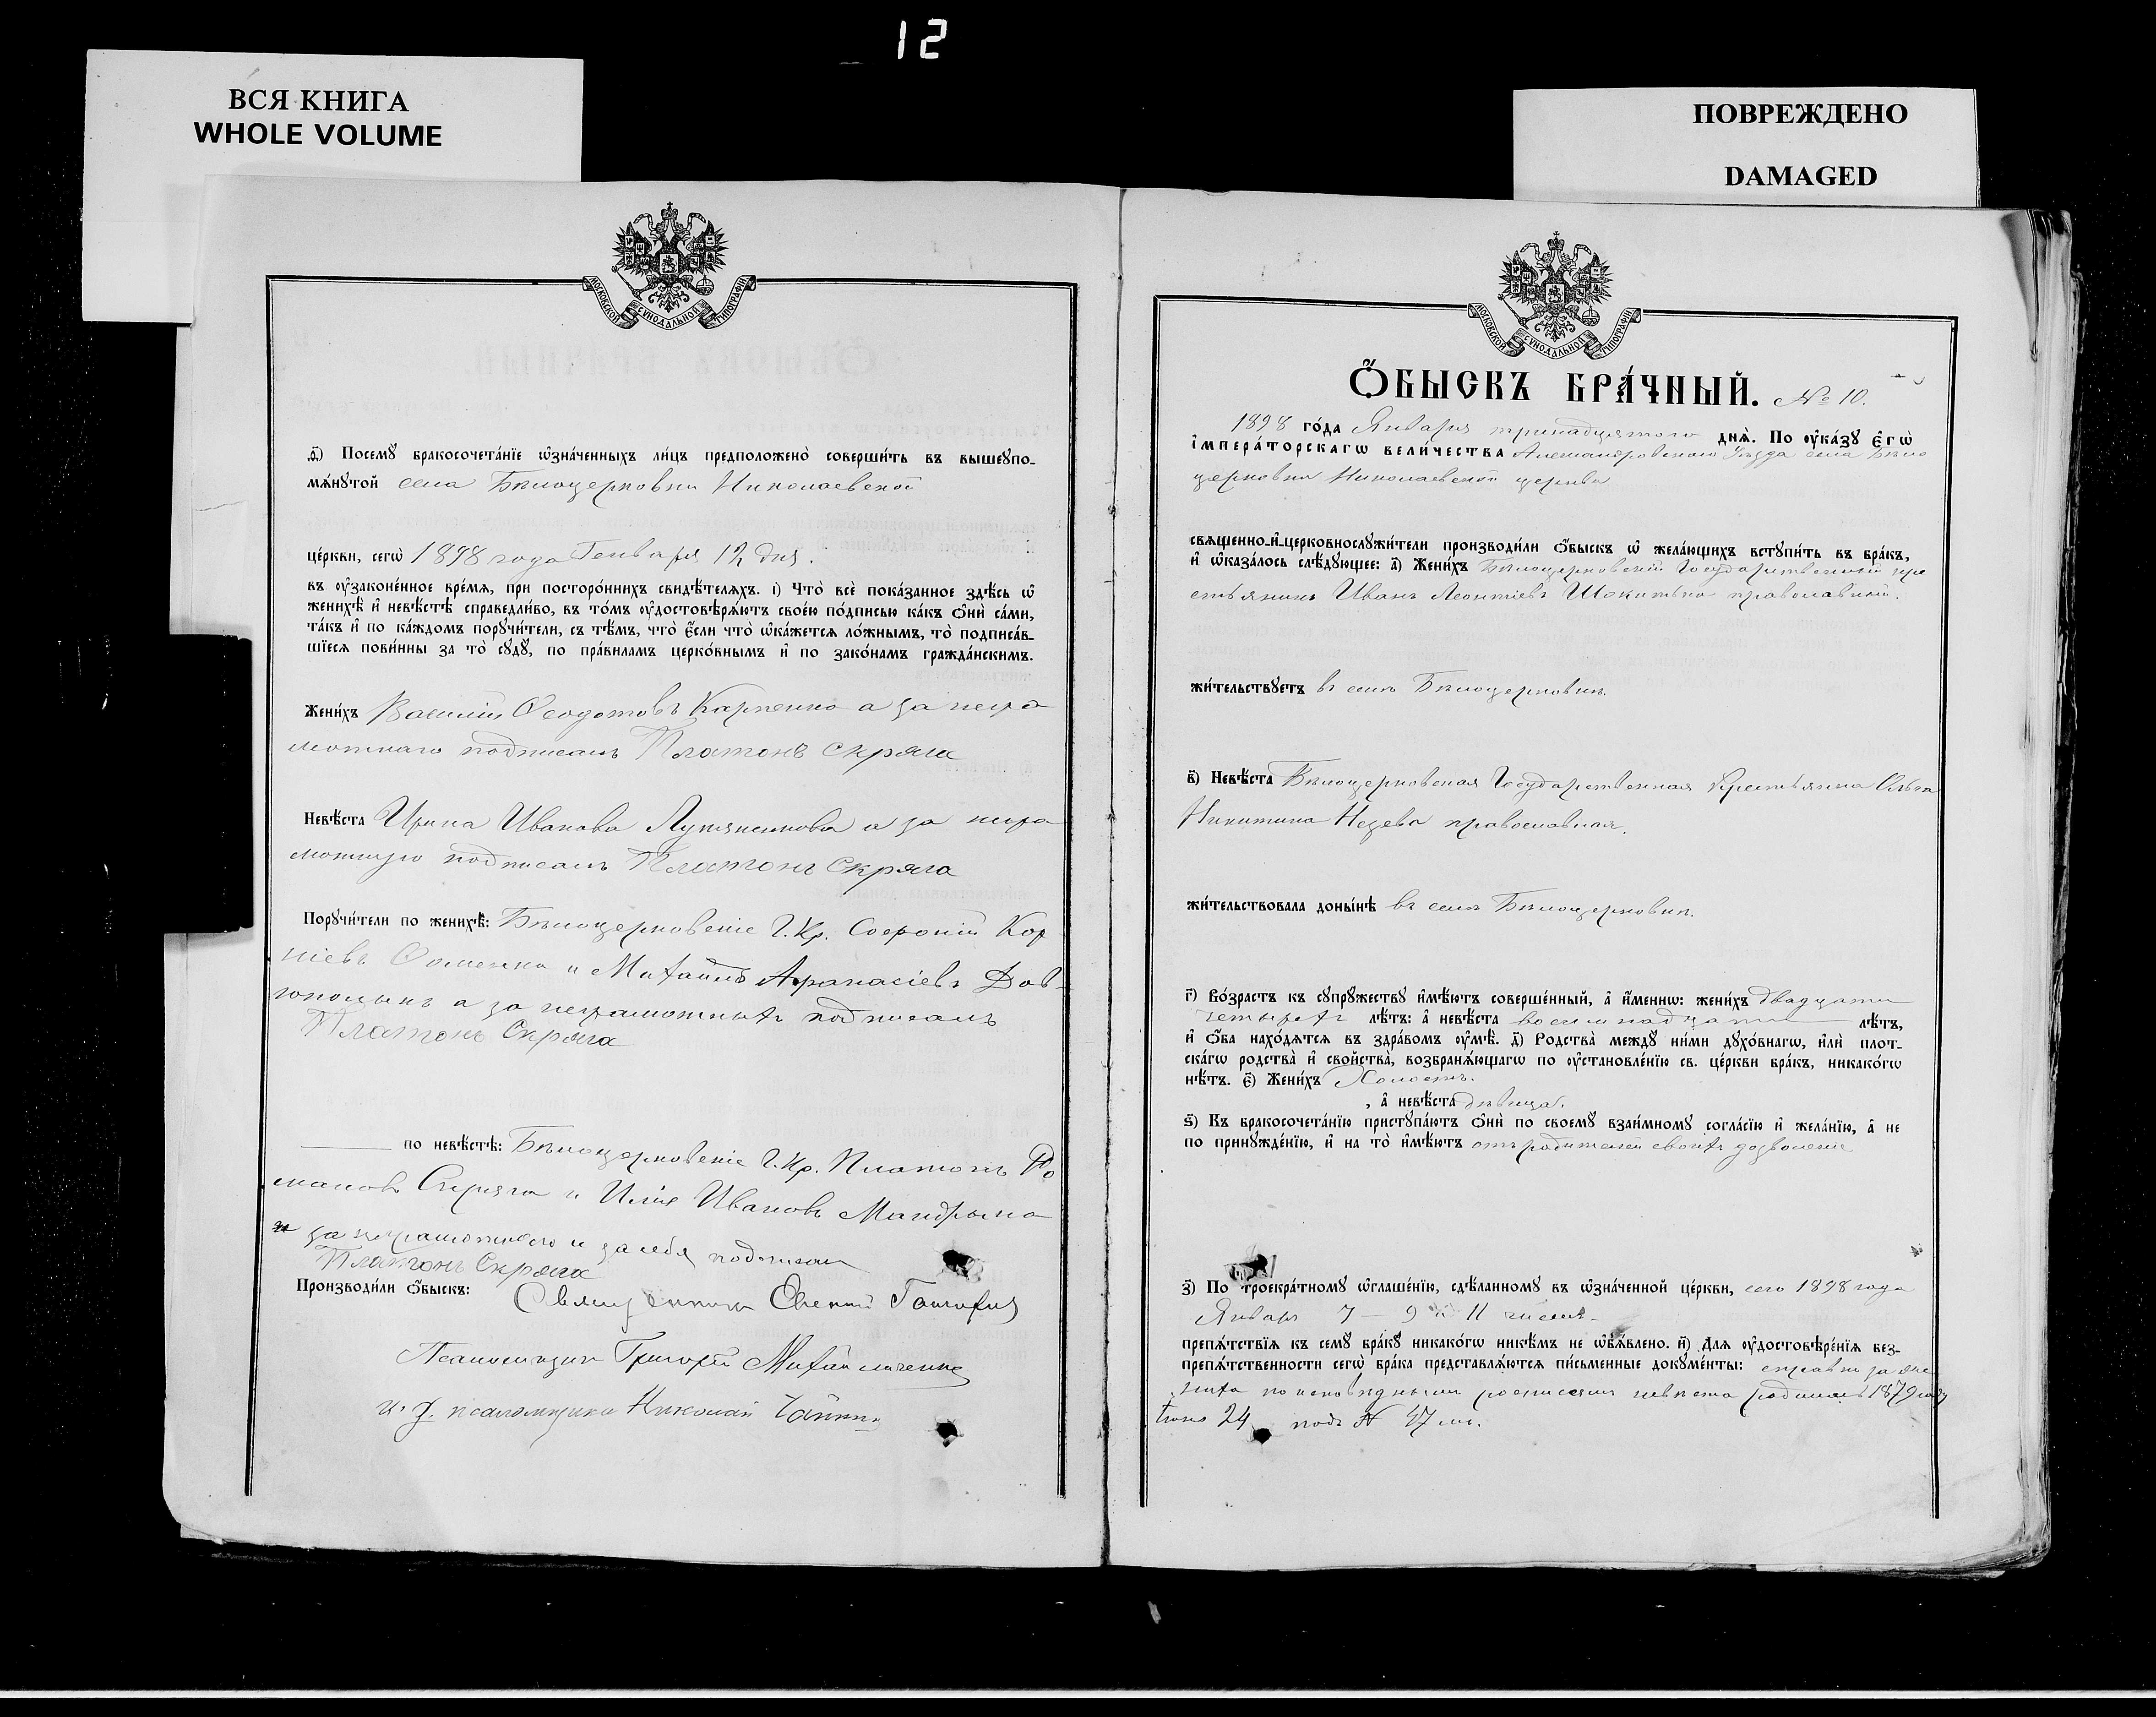 12
ВСЯ КНИГА
WHOLE VOLUME
ПОВРЕЖДЕНО
DAMAGED
МОСКОВСКОЙ СѴНОДАЛЬНОЙ ТИПОГРАФІИ
Посемꙋ бракосочета́нїе ѡ҆зна́ченныхъ ли́цъ предположено̀ соверши́ть въ вышеꙋпо-
мѧ́нꙋтой села Бѣлоцерковки Николаевской
це́ркви, сегѡ̀ 1898 года Генваря 12 дня.
въ ᲂу҆законе́нное вре́мѧ, при посторо́ннихъ свидѣ́телѧхъ. і) Что̀ всѐ пока́занное здѣ́сь ѡ҆
женихѣ̀ и҆ невѣ́стѣ справедли́во, въ то́мъ ᲂу҆достовѣрѧ́ютъ свое́ю по́дписью ка́къ ѻ҆нѝ са́ми,
та́къ и҆ по ка́ждомъ порꙋчи́тели, съ тѣ́мъ, что̀ є҆́сли что̀ ѡ҆ка́жетсѧ ло́жнымъ, то̀ подписа́в-
шїесѧ пови́нны за то̀ сꙋдꙋ̀, по пра́виламъ церко́внымъ и҆ по зако́намъ гражда́нскимъ.
Жени́хъ Василій Ѳеодотовъ Карпенко а за негра
мотнаго подписалъ Платонъ Скряга
Невѣ́ста Ирина Иванова а за негра
мотную подписалъ Платонъ Скряга
Порꙋчи́тели по женихѣ̀: Бѣлоцерковскіе Г. Кр. Софроній Кор
ніевъ Фоменко и Михаилъ Афанасіевъ Дов-
а за неграмотныхъ подписалъ
Платонъ Скряга
по невѣ́стѣ: Бѣлоцерковскіе Г. Кр. Платонъ Ро
мановъ Скряга и Илія Ивановъ Мандрыка
за неграмотнаго и за себя подписалъ
Платонъ Скряга
Производи́ли ѻ҆́быскъ: Священникъ Евгеній
Псаломщикъ Григорій Михайличенко
и. д. псаломщика Николай
МОСКОВСКОЙ СѴНОДАЛЬНОЙ ТИПОГРАФІИ
Ѻ҆́БЫСКЪ БРА́ЧНЫЙ. № 10.
1898 го́да Января тринадцятого днѧ̀. По ᲂу҆ка́зꙋ є҆гѡ̀
і҆мпера́торскагѡ вели́чества Александровского Уѣзда села Бѣло
церковки Николаевской церкви
свѧще́нно-и҆-церковнослꙋжи́тели производи́ли ѻ҆́быскъ ѡ҆ жела́ющихъ встꙋпи́ть въ бра́къ,
и҆ ѡ҆каза́лось слѣ́дꙋющее: а҃) Жени́хъ Бѣлоцерковскій Государственный кре
стьянинъ Иванъ Леонтіевъ православный.
жи́тельствꙋетъ въ селѣ Бѣлоцерковкѣ.
в҃) Невѣ́ста Бѣлоцерковская Государственная Крестьянка Ольга
Никитина православная.
жи́тельствовала доны́нѣ въ селѣ Бѣлоцерковкѣ.
г҃) Во́зрастъ къ сꙋпрꙋ́жествꙋ и҆мѣ́ютъ соверше́нный, а҆ и҆́меннѡ: жени́хъ двадцати
четырехъ лѣ́тъ: а҆ невѣ́ста восемнадцати лѣ́тъ,
и҆ ѻ҆́ба нахо́дѧтсѧ въ здра́вомъ ᲂу҆мѣ̀. д҃) Родства̀ междꙋ̀ ни́ми дꙋхо́внагѡ, и҆лѝ плот-
ска́гѡ родства̀ и҆ сво́йства̀, возбранѧ́ющагѡ по ᲂу҆становле́нїю св. це́ркви бра́къ, никако́гѡ
нѣ́тъ. є҃) Жени́хъ Холостъ.
, а҆ невѣ́ста дѣвица.
ѕ҃) Къ бракосочета́нїю пристꙋпа́ютъ ѻ҆нѝ по своемꙋ̀ взаи́мномꙋ согла́сїю и҆ жела́нїю, а҆ не
по принꙋжде́нїю, и҆ на то̀ и҆мѣ́ютъ отъ родителей своихъ дозволеніе
з҃) По троекра́тномꙋ ѡ҆глаше́нїю, сдѣ́ланномꙋ въ ѡ҆зна́ченной це́ркви, сего 1898 года
Января 7 – 9 и 11 числъ.
препѧ́тствїѧ къ семꙋ̀ бра́кꙋ никако́гѡ никѣ́мъ не ѡ҆б̾ѧ́влено. и҃) Длѧ ᲂу҆достовѣре́нїѧ без-
препѧ́тственности сегѡ̀ бра́ка представлѧ́ютсѧ пи́сьменные докꙋме́нты: справки за же
ниха по исповѣднымъ росписямъ невѣста родилась 1879 году
Іюня 24 подъ № 47 мъ.